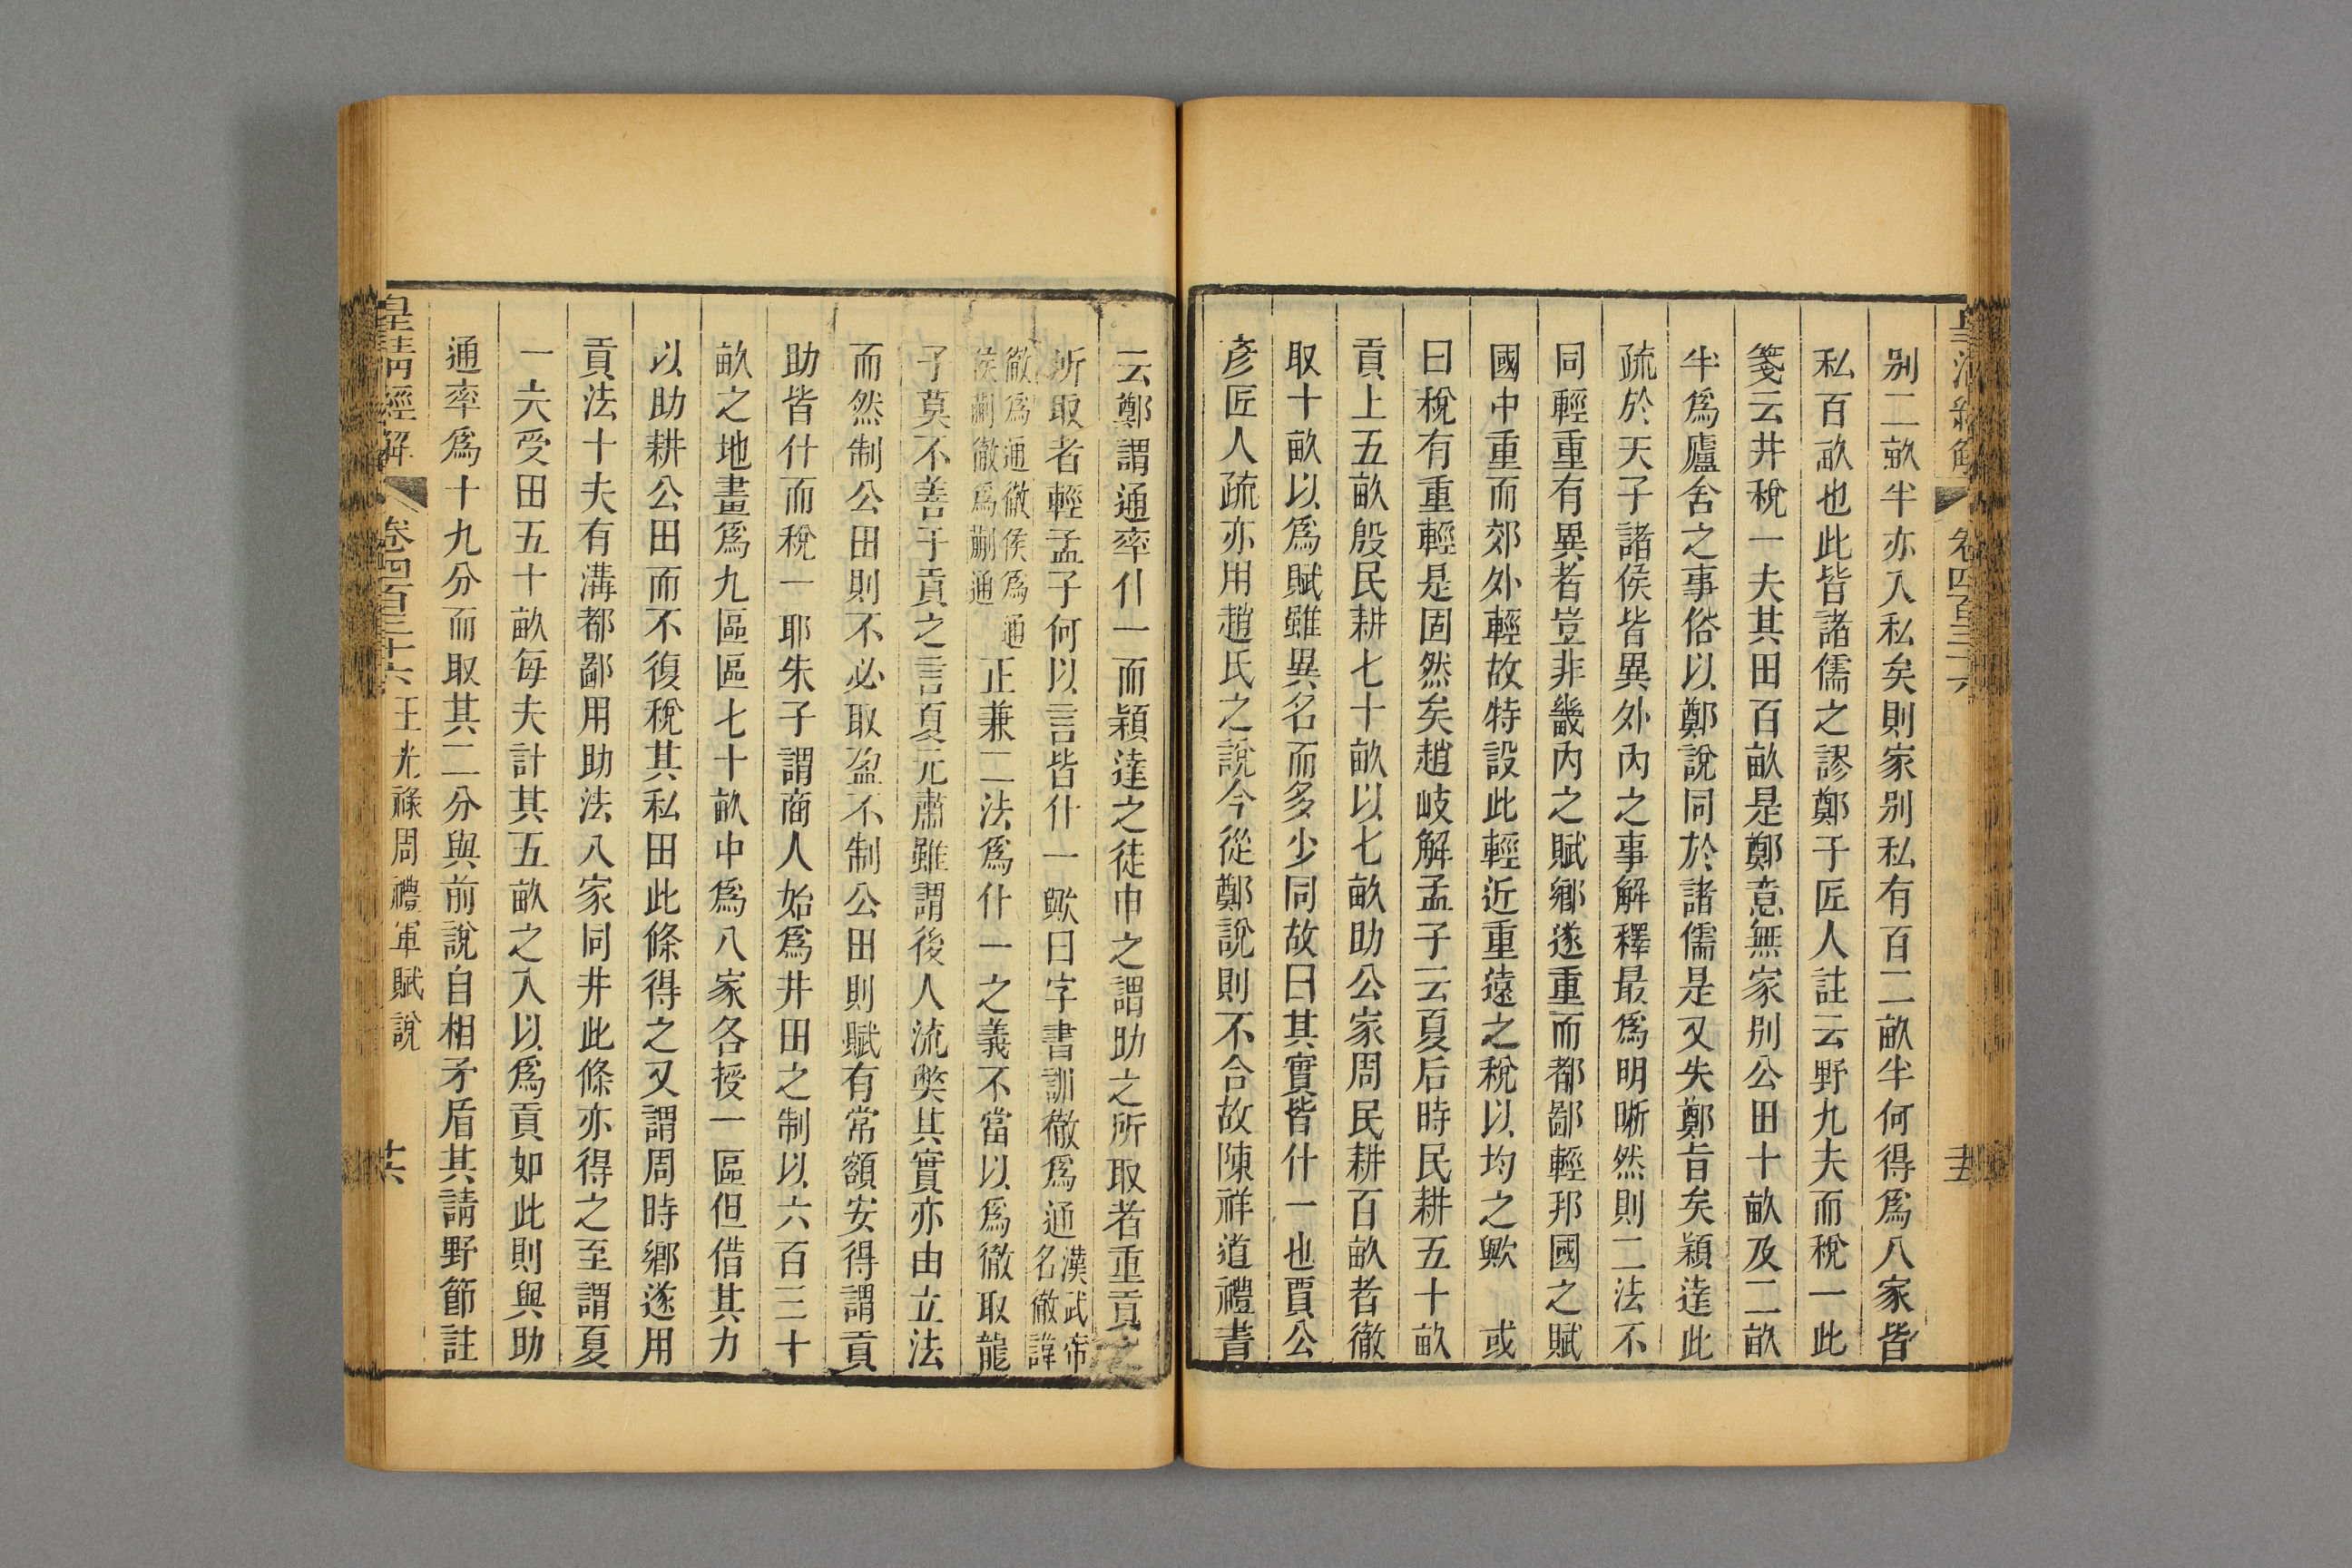 別二畝半亦入私矣則家別私有百二畝半何得爲八家皆
私百畝也此皆諸儒之謬鄭于匠人註云野九夫而稅一此
箋云井稅一夫其田百畝是鄭意無家別公田十畝及二畝
半爲廬舍之事俗以鄭說同於諸儒是又失鄭旨矣穎達此
疏於天子諸侯皆異外內之事解釋最爲明晰然則二法不
同輕重有異者豈非畿內之賦鄉遂重而都鄙輕邦國之賦
國中重而郊外輕故特設此輕近重遠之稅以均之歟 或
曰稅有重輕是固然矣趙岐解孟子云夏后時民耕五十畝
貢上五畝殷民耕七十畝以七畝助公家周民耕百畝者徹
取十畝以爲賦雖異名而多少同故曰其實皆什一也賈公
彥匠人疏亦用趙氏之說今從鄭說則不合故陳祥道禮書
云鄭謂通率什一而穎達之徒申之謂助之所取者重貢之
所取者輕孟子何以言皆什一歟曰字書訓徹爲通漢武帝名徹諱
徹爲通徹侯爲通侯蒯徹爲蒯通正兼二法爲什一之義不當以爲徹取龍
子莫不善于貢之言夏元肅雖謂後人流獘其實亦由立法
而然制公田則不必取盈不制公田則賦有常額安得謂貢
助皆什而稅一耶朱子謂商人始爲井田之制以六百三十
畝之地畫爲九區區七十畝中爲八家各授一區但借其力
以助耕公田而不復稅其私田此條得之又謂周時鄉遂用
貢法十夫有溝都鄙用助法八家同井此條亦得之至謂夏
一夫受田五十畝每夫計其五畝之入以爲貢如此則與助
通率爲十九分而取其二分與前說自相矛盾其請野節註
皇清經解 卷四百三十六 王光祿周禮軍賦說 共